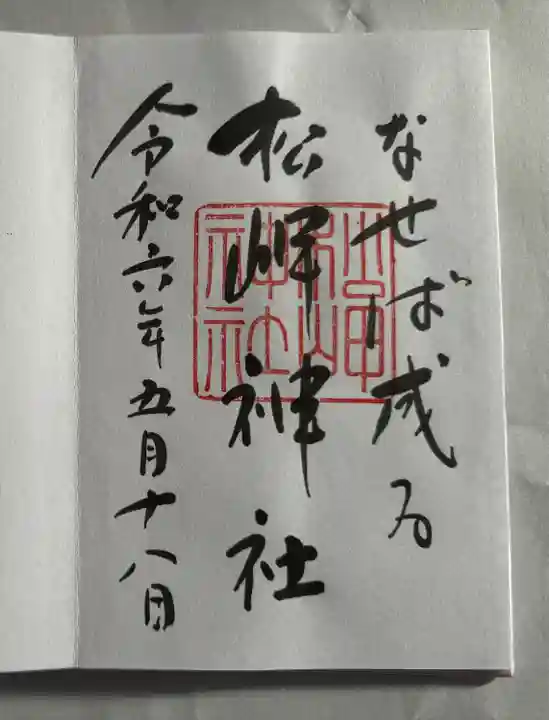 なせば成る
松岬神社
令和六年五月十八日